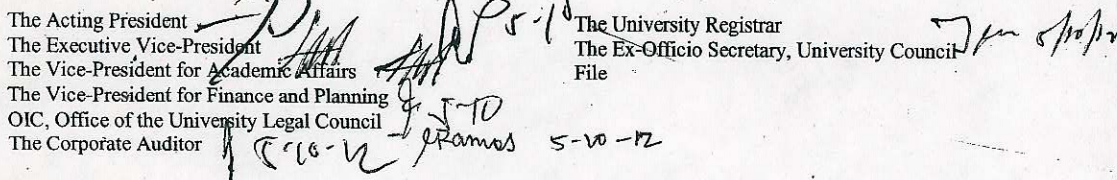 The Acting President
The Executive Vice-President
The Vice-President for Academic Affairs
The Vice-President for Finance and Planning
OIC, Office of the University Legal Council
The Corporate Auditor
5-10
Ramos 5-10-12
5-10-12
The University Registrar
The Ex-Officio Secretary, University Council
File
5/10/12